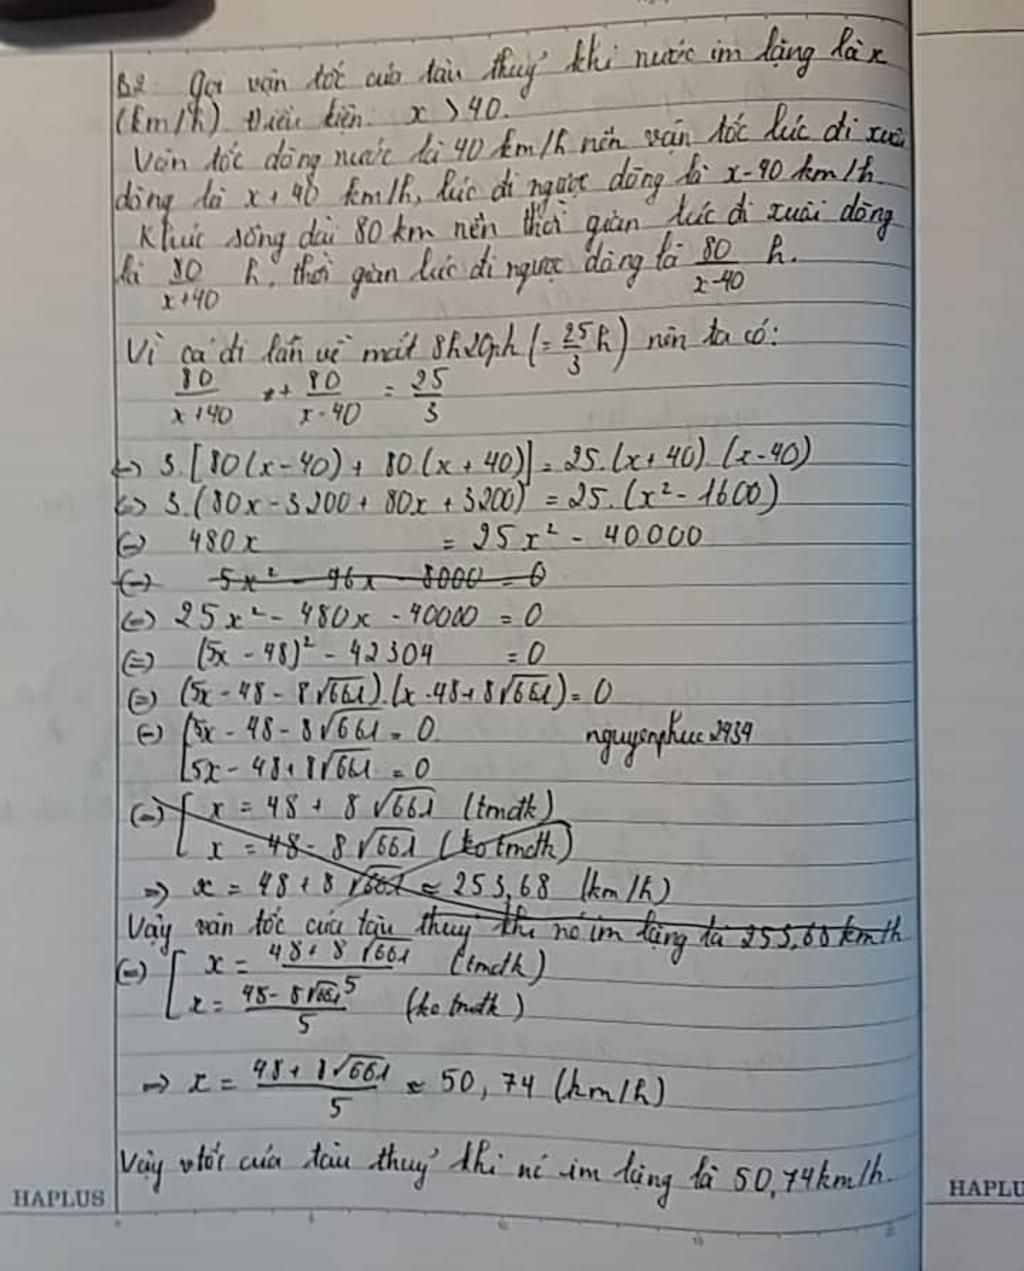 B2: Gọi vận tốc của tàu thuỷ khi nước im lặng là x
(km/h). Điều kiện: x > 40.
Vận tốc dòng nước là 40 km/h nên vận tốc lúc đi xuôi
dòng là x + 40 km/h, lúc đi ngược dòng là x - 40 km/h
Khúc sông dài 80 km nên thời gian lúc đi xuôi dòng
là 80/(x+40) h, thời gian lúc đi ngược dòng là 80/(x-40) h.
Vì cả đi lẫn về mất 8h20ph (= 25/3 h) nên ta có:
80/(x+40) + 80/(x-40) = 25/3
<=> 3.[80(x-40) + 80.(x+40)] = 25.(x+40).(x-40)
<=> 3.(80x - 3200 + 80x + 3200) = 25.(x² - 1600)
<=> 480x = 25x² - 40000
<=> 5x² - 96x - 8000 = 0
<=> 25x² - 480x - 40000 = 0
<=> (5x - 48)² - 42304 = 0
<=> (5x - 48 - 8√661).(x - 48 + 8√661) = 0
<=> [5x - 48 - 8√661 = 0
nguyenphuc2434
[5x - 48 + 8√661 = 0
<=> [x = 48 + 8√661 (tmđk)
[x = 48 - 8√661 (ko tmđk)
=> x = 48 + 8√661 ≈ 253,68 (km/h)
Vậy vân tốc của tàu thuỷ khi nc im lặng là 253,68 km/h
<=> [x = (48 + 8√661)/5 (tmđk)
[x = (48 - 8√661)/5 (ko tmđk)
=> x = (48 + 8√661)/5 ≈ 50,74 (km/h)
Vậy vtốc của tàu thuỷ khi nc im lặng là 50,74km/h.
HAPLUS
HAPLU